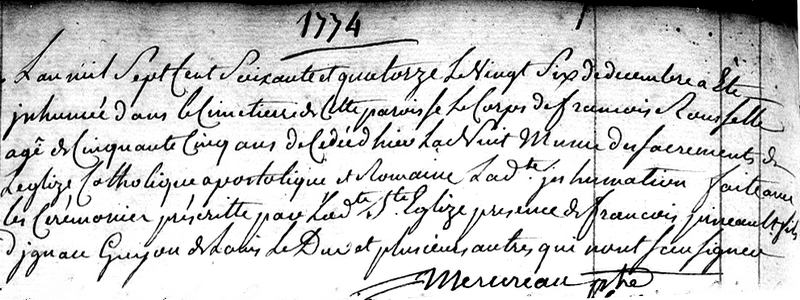 1774
L'an mil Sept Cent Soixante et quatorze Le Vingt Six de decembre a Eté
inhumée dans le Cimetiere de Cette paroisse Le Corps de francois Rousselle
agé de Cinquante Cinq ans decedé d'hier La Nuit Munie des sacrements de
L'eglize Catholique apostolique et Romaine Lad.te inhumation faite avec
les Cérémonier préscritte par Lad.te S.te Eglize presence de francois pineault fils
d'ignace Guyon de Louis Le Duc et plusieurs autres qui n'ont Seu signer
Mercereau ptre